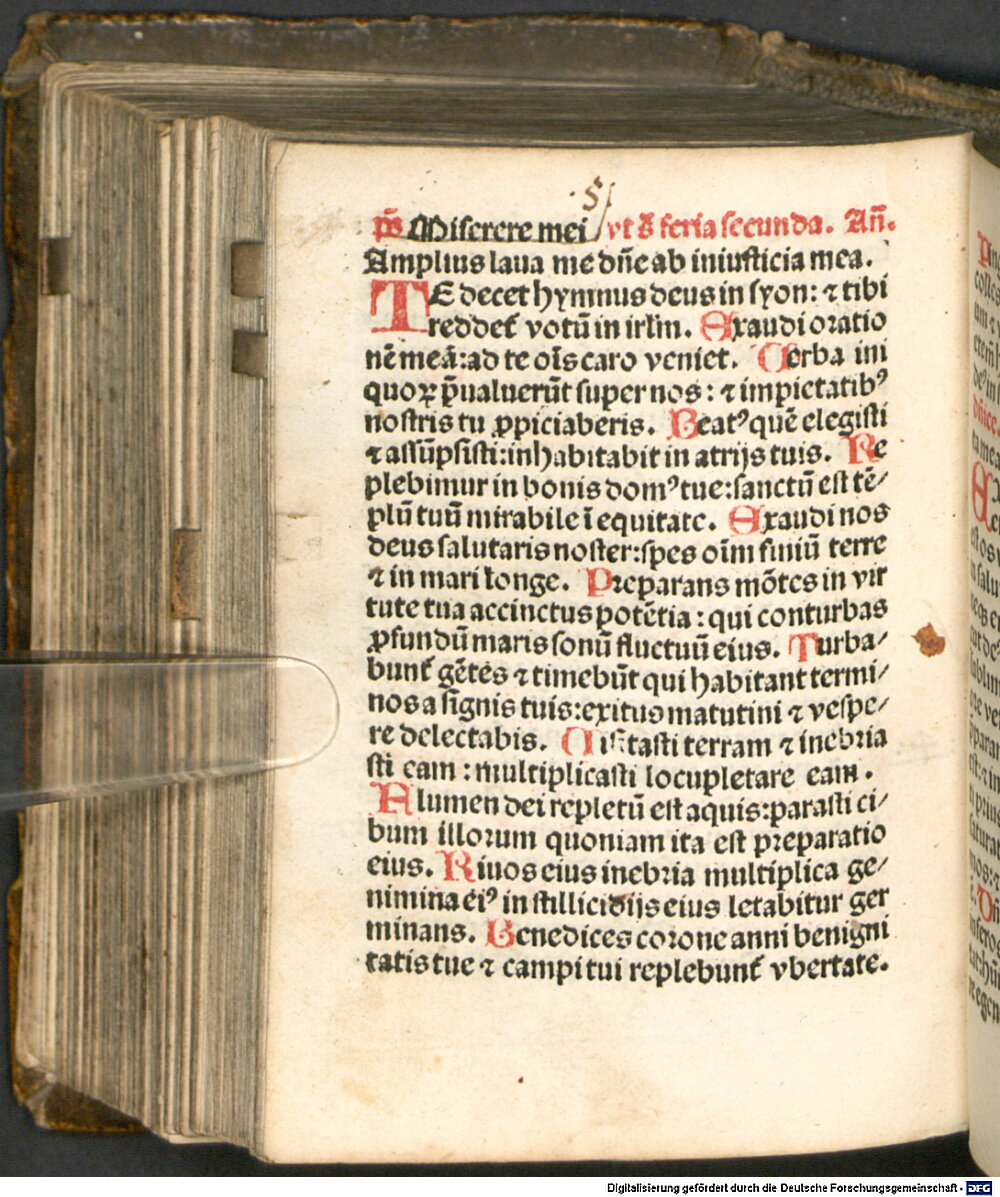 ·5/·
p̄s Miserere mei / vt s̄ feria secunda. Añ.
Amplius laua me dñe ab iniusticia mea.
TE decet hymnus deus in syon: ⁊ tibi
reddet̄ votū in irl̄m. Exaudi oratio
nē meā: ad te oīs caro veniet. Verba ini
quoꝝ p̄ualuerūt super nos: ⁊ impietatibꝰ
nostris tu ꝓpiciaberis. Beatꝰ quē elegisti
⁊ assūpsisti: inhabitabit in atrijs tuis. Re
plebimur in bonis domꝰ tue: sanctū est tē/
plū tuū mirabile ī equitate. Exaudi nos
deus salutaris noster: spes oīm finiū terre
⁊ in mari longe. Preparans mōtes in vir
tute tua accinctus potētia: qui conturbas
ꝓfundū maris sonū fluctuū eius. Turba/
bunt̄ gētes ⁊ timebūt qui habitant termi/
nos a signis tuis: exitus matutini ⁊ vespe/
re delectabis. Visitasti terram ⁊ inebria
sti eam: multiplicasti locupletare eam.
Flumen dei repletū est aquis: parasti ci/
bum illorum quoniam ita est preparatio
eius. Riuos eius inebria multiplica ge/
nimina eiꝰ in stillicidijs eius letabitur ger
minans. Benedices corone anni benigni
tatis tue ⁊ campi tui replebunt̄ vbertate.
Digitalisierung gefördert durch die Deutsche Forschungsgemeinschaft - DFG